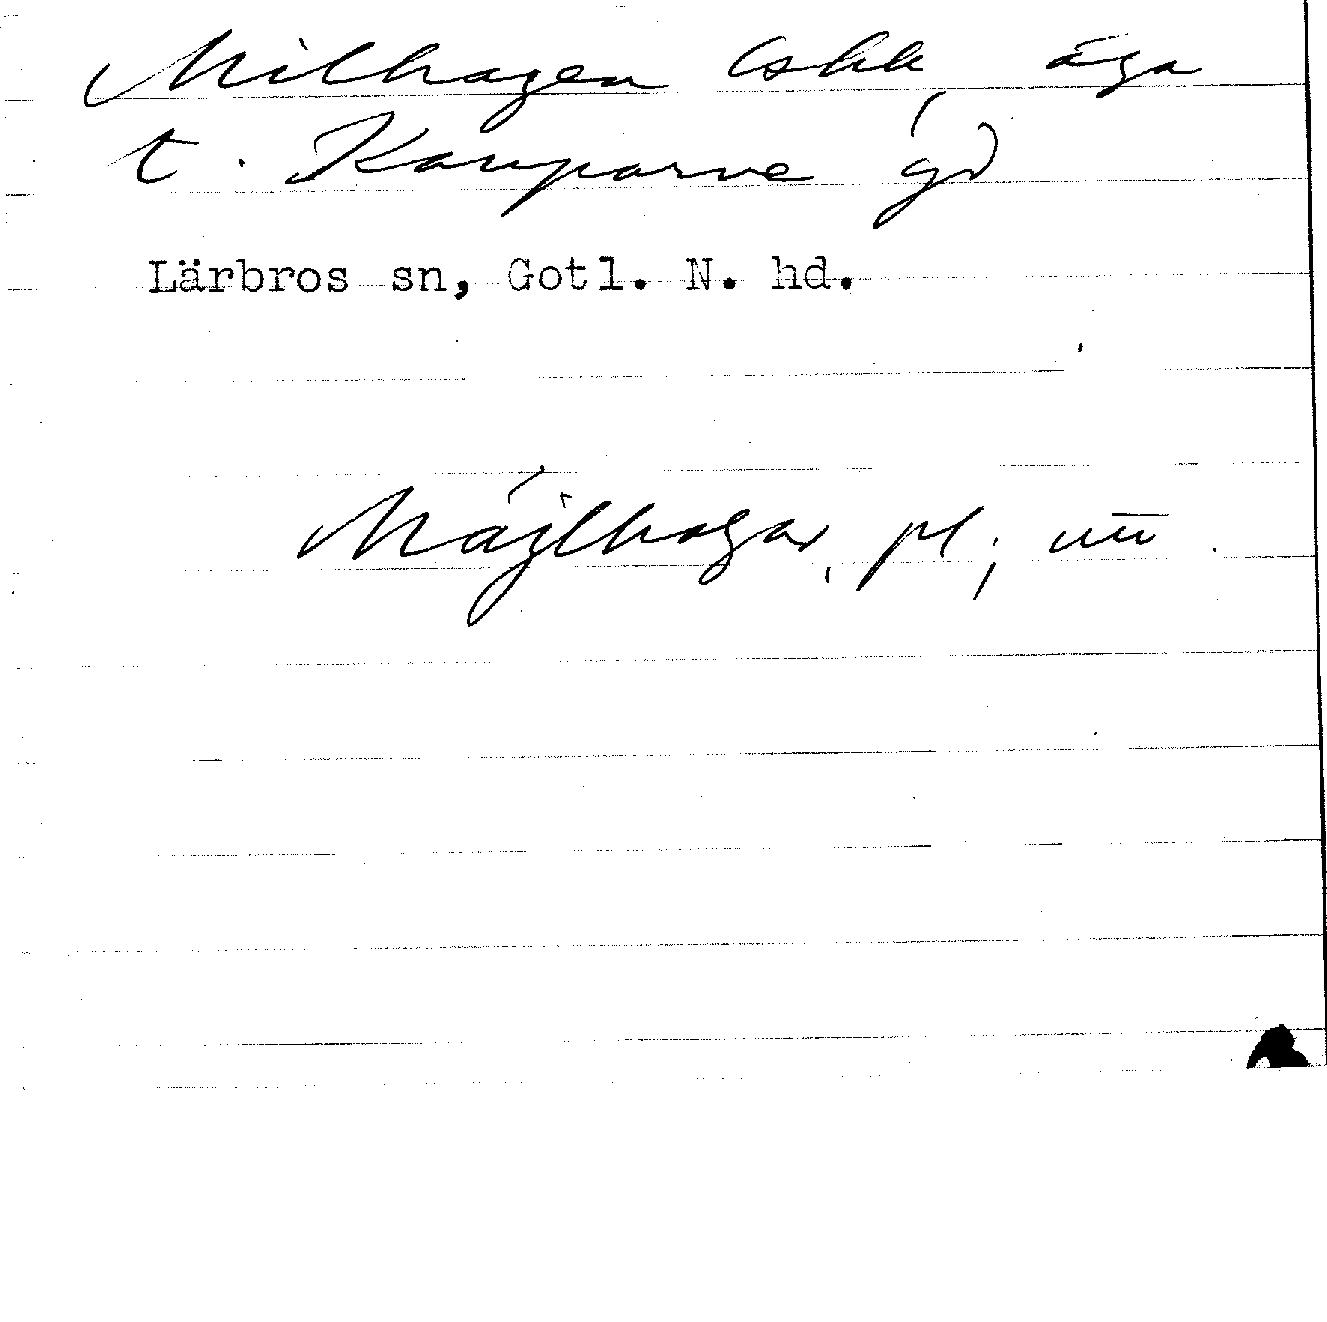 Milhagen (skk, äga
t. Kauparve gd)
Lärbros sn, Gotl. N. hd.
Májlhagar, pl;